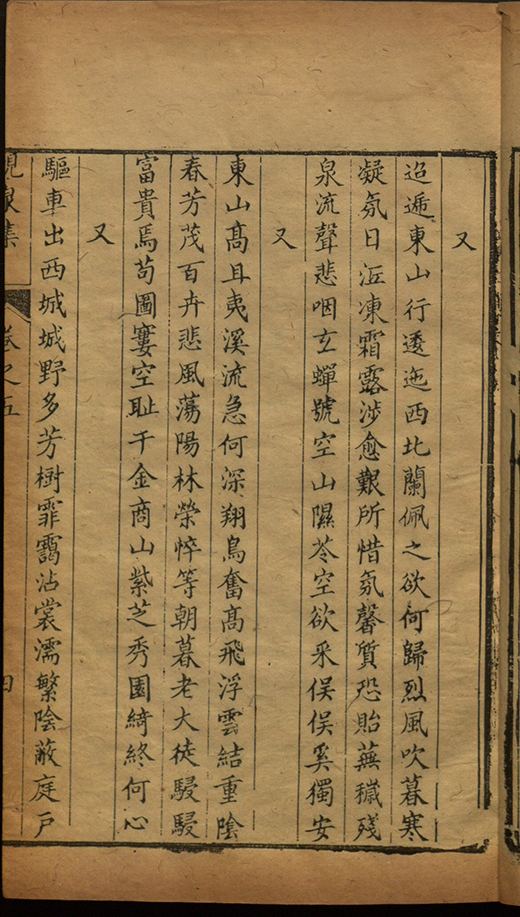 又
迢遞東山行逶迤西北蘭佩之欲何歸烈風吹暮寒
凝氛日沍凍霜露涉愈艱所惜氛馨質恐貽蕪穢殘
泉流聲悲咽玄蟬號空山隰苓空欲采俁俁奚獨安
又
東山髙且夷溪流急何深翔鳥奮髙飛浮雲結重陰
春芳茂百卉悲風蕩陽林榮悴等朝暮老大徒駸駸
富貴焉苟圖窶空耻千金商山紫芝秀園綺終何心
又
驅車出西城城野多芳樹霏靄沾裳濡繁陰蔽庭戶
泉集 卷之五 四